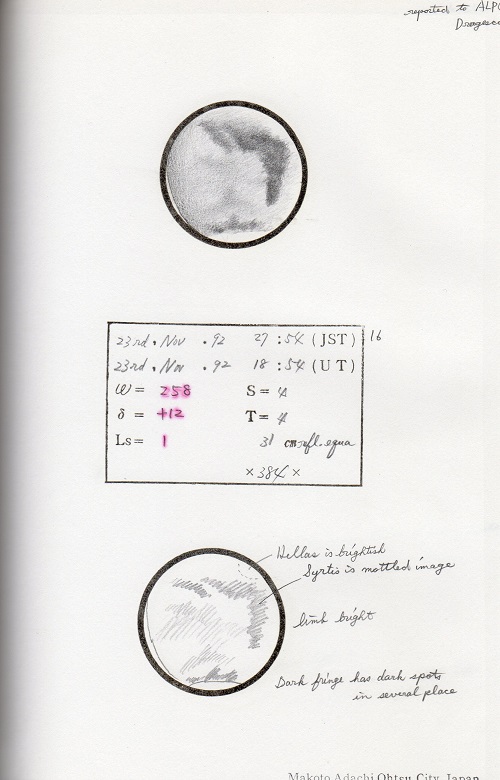 reported to ALPO
23rd, Nov . 92 27 : 54 (JST) 16
23rd, Nov . 92 18 : 54 (UT)
ω = 258 S = 4
δ = +12 T = 4
Ls = 1 31 cm refl. equa
× 384 ×
Hellas is brightish
Syrtis is mottled image
limb bright
Dark fringe has dark spots
in several place
Makoto Adachi Ohtsu City, Japan